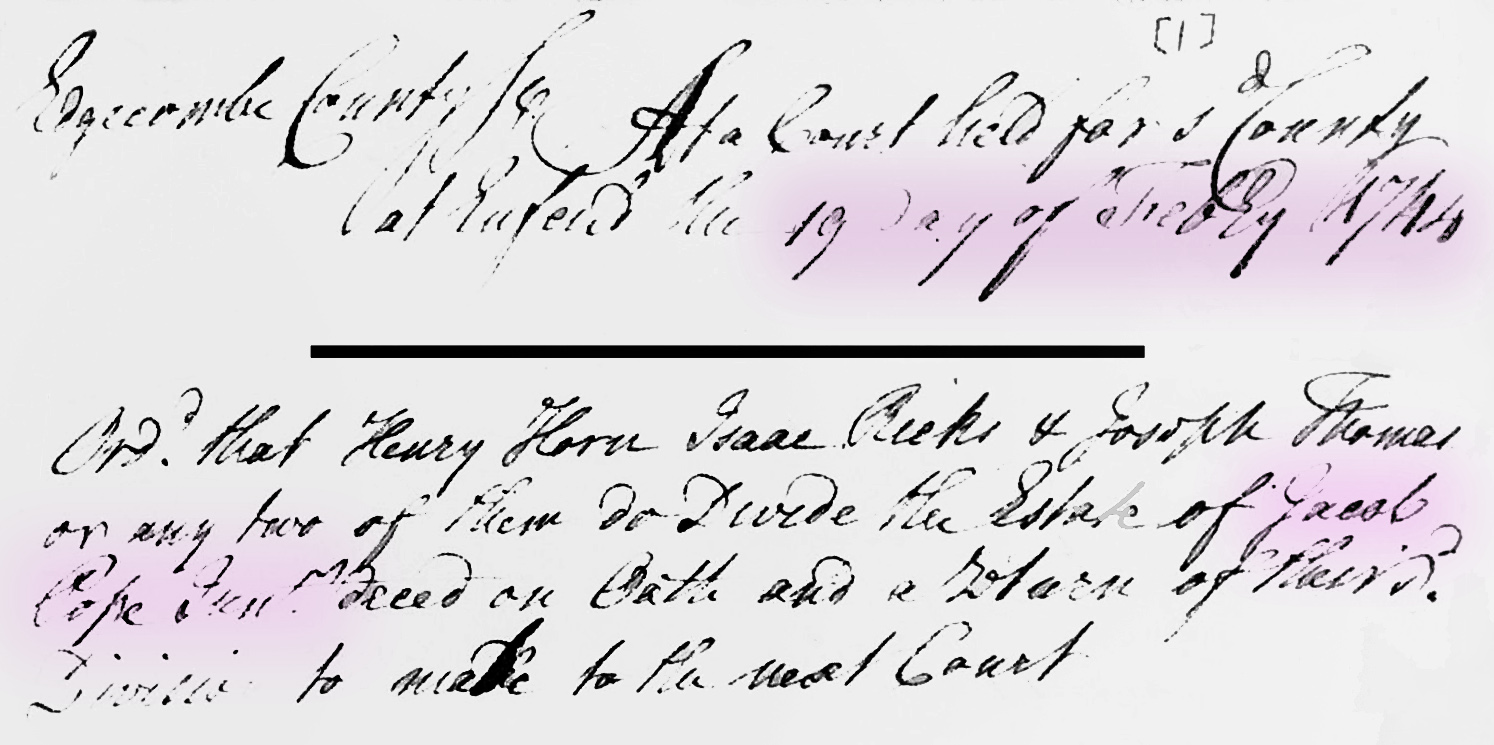 [1]
Edgecombe County Sc At a Court held for sd County
at Enfeild the 19 Day of Febry 1744
Ord. that Henry Horn Isaac Ricks & Joseph Thomas
or any two of them do Divide the Estate of Jacob
Cope Junr deced on Oath and a Return of their sd.
Division to make to the next Court